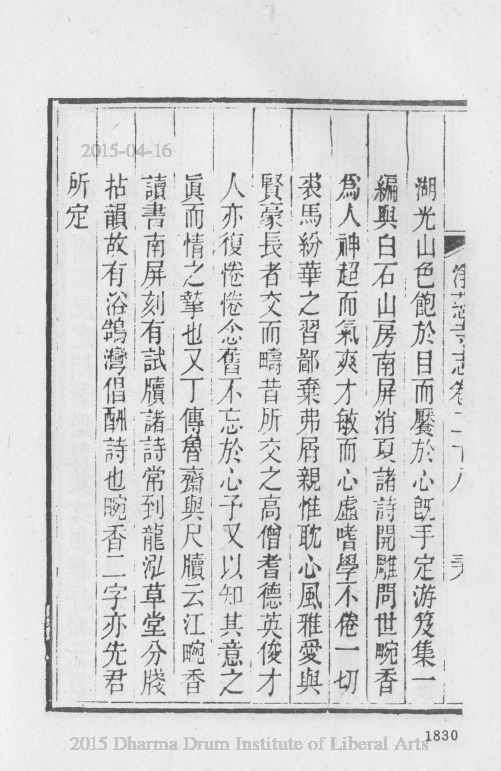 2015-04-16
淨慈寺志卷二十八
湖光山色飽於目而饜於心既手定游笈集一
編與白石山房南屏消夏諸詩開雕問世畹香
爲人神超而氣爽才敏而心虛嗜學不倦一切
裘馬紛華之習鄙棄弗屑親惟耽心風雅愛與
賢豪長者交而疇昔所交之高僧耆德英俊才
人亦復惓惓念舊不忘於心予又以知其意之
眞而情之摯也又丁傳魯齋與尺牘云江畹香
讀書南屏刻有試牘諸詩常到龍泓草堂分牋
拈韻故有浴鵠灣倡酬詩也畹香二字亦先君
所定
1830
2015 Dharma Drum Institute of Liberal Arts